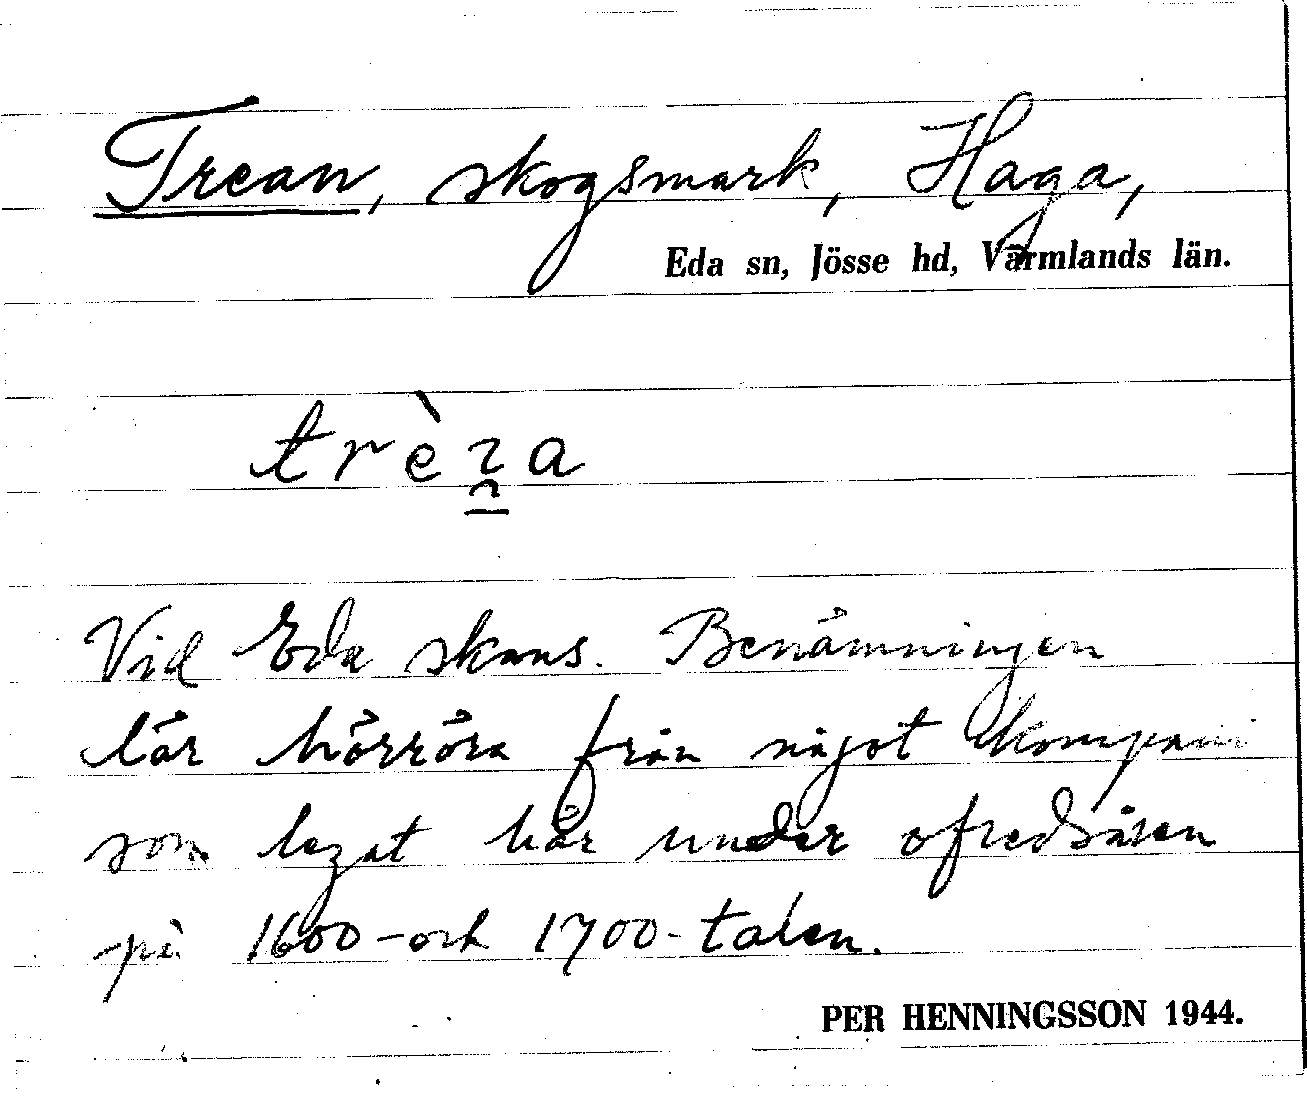 Trean, skogsmark, Haga,
Eda sn, Jösse hd, Värmlands län.
trèɿ̯a
Vid Eda skans. Benämningen
lär härröra från något kompani
som legat här under ofredsåren
på 1600-och 1700-talen.
PER HENNINGSSON 1944.